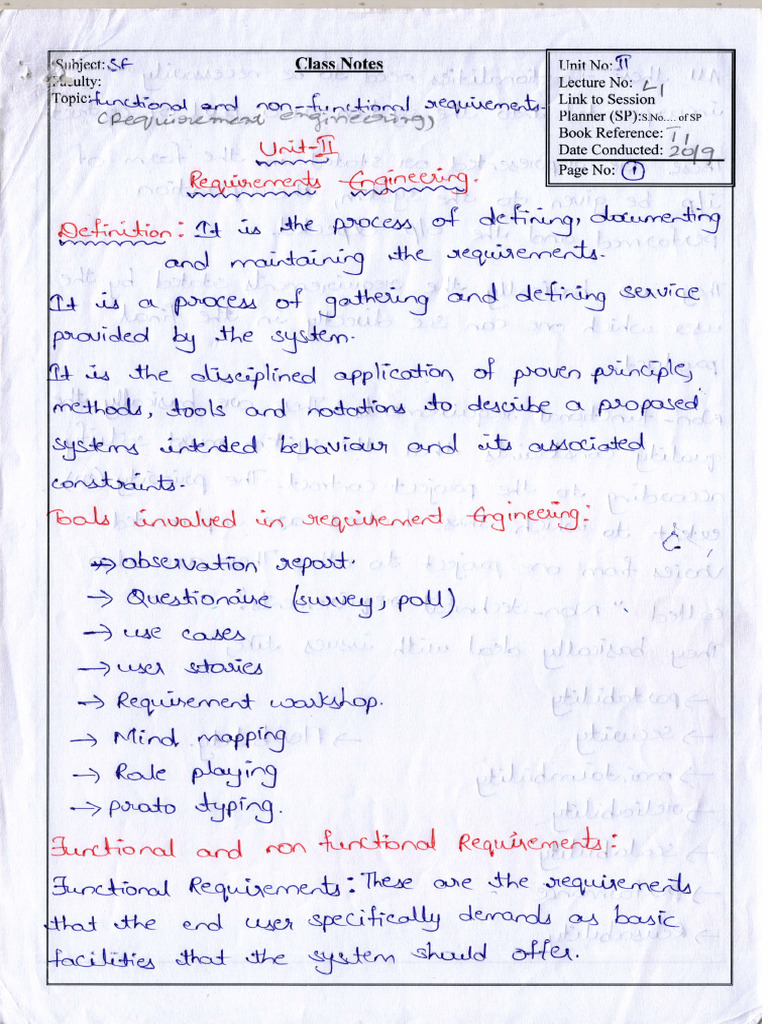 Subject: SE
Class Notes
Unit No: II
Faculty:
Lecture No: L1
Topic: functional and non-functional requirements.
(Requirement engineering)
Link to Session
Planner (SP):S.No.... of SP
Book Reference: T1
Date Conducted: 2019
Page No: 1
Unit-II
Requirements Engineering.
Definition: It is the process of defining, documenting
and maintaining the requirements.
It is a process of gathering and defining service
provided by the system.
It is the disciplined application of proven principles,
methods, tools and notations to describe a proposed
systems intended behaviour and its associated
constraints.
Tools involved in requirement Engineering:
→ observation report.
→ Questionaire (survey, poll)
→ use cases
→ user stories
→ Requirement workshop.
→ Mind mapping
→ Role playing
→ proto typing.
Functional and non functional Requirements:
Functional Requirements: These are the requirements
that the end user specifically demands as basic
facilities that the system should offer.